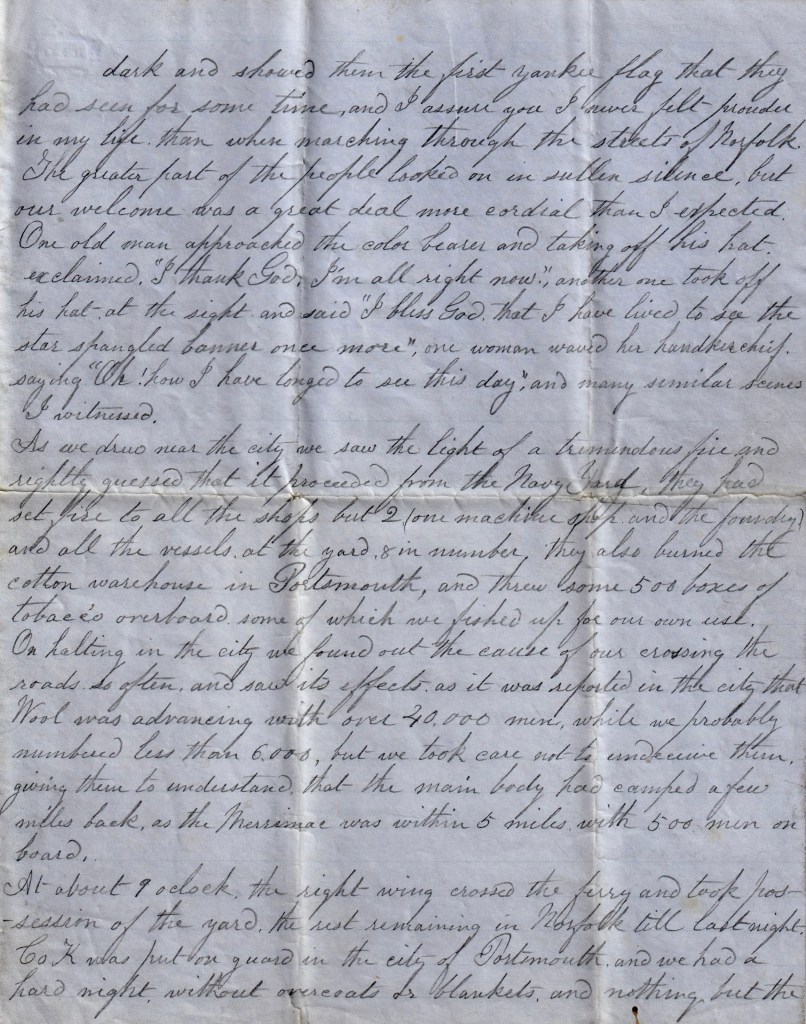 dark and showed them the first yankee flag that they
had seen for some time, and I assure you I never felt prouder
in my life. than when marching through the streets of Norfolk.
The greater part of the people looked on in sullen silence, but
our welcome was a great deal more cordial than I expected.
One old man approached the color bearer and taking off his hat.
exclaimed, "I thank God, I'm all right now", another one took off
his hat, at the sight and said "I bless God. that I have lived to see the
star spangled banner once more", one woman waved her handkerchief.
saying "Oh! how I have longed to see this day", and many similar scenes
I witnessed.
As we drew near the city we saw the light of a tremendous fire and
rightly guessed that it proceeded from the Navy Yard, they had
set fire to all the shops but 2 (one machine shop and the foundry)
and all the vessels. at the yard. 8 in number, they also burned the
cotton warehouse in Portsmouth, and threw some 500 boxes of
tobacco overboard. some of which we fished up for our own use.
On halting in the city we found out the cause of our crossing the
roads so often, and saw its effects. as it was reported in the city that
Wool was advancing with over 40.000 men, while we probably
numbered less than 6.000, but we took care not to undeceive them,
giving them to understand. that the main body had camped a few
miles back, as the Merrimac was within 5 miles. with 500 men on
board.
At about 9 oclock. the right wing crossed the ferry and took pos-
-session of the yard. the rest remaining in Norfolk till last night.
Co K was put on guard in the city of Portsmouth. and we had a
hard night, without overcoats or blankets. and nothing but the